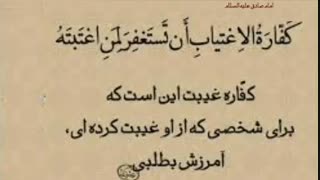 امام صادق علیه‌السلام
كَفّارَةُ الاِغتيابِ أن تَستَغفِرَ لِمَنِ اغتَبتَهُ
کفّاره غیبت این است که
برای شخصی که از او غیبت کرده ای،
آمرزش بطلبی